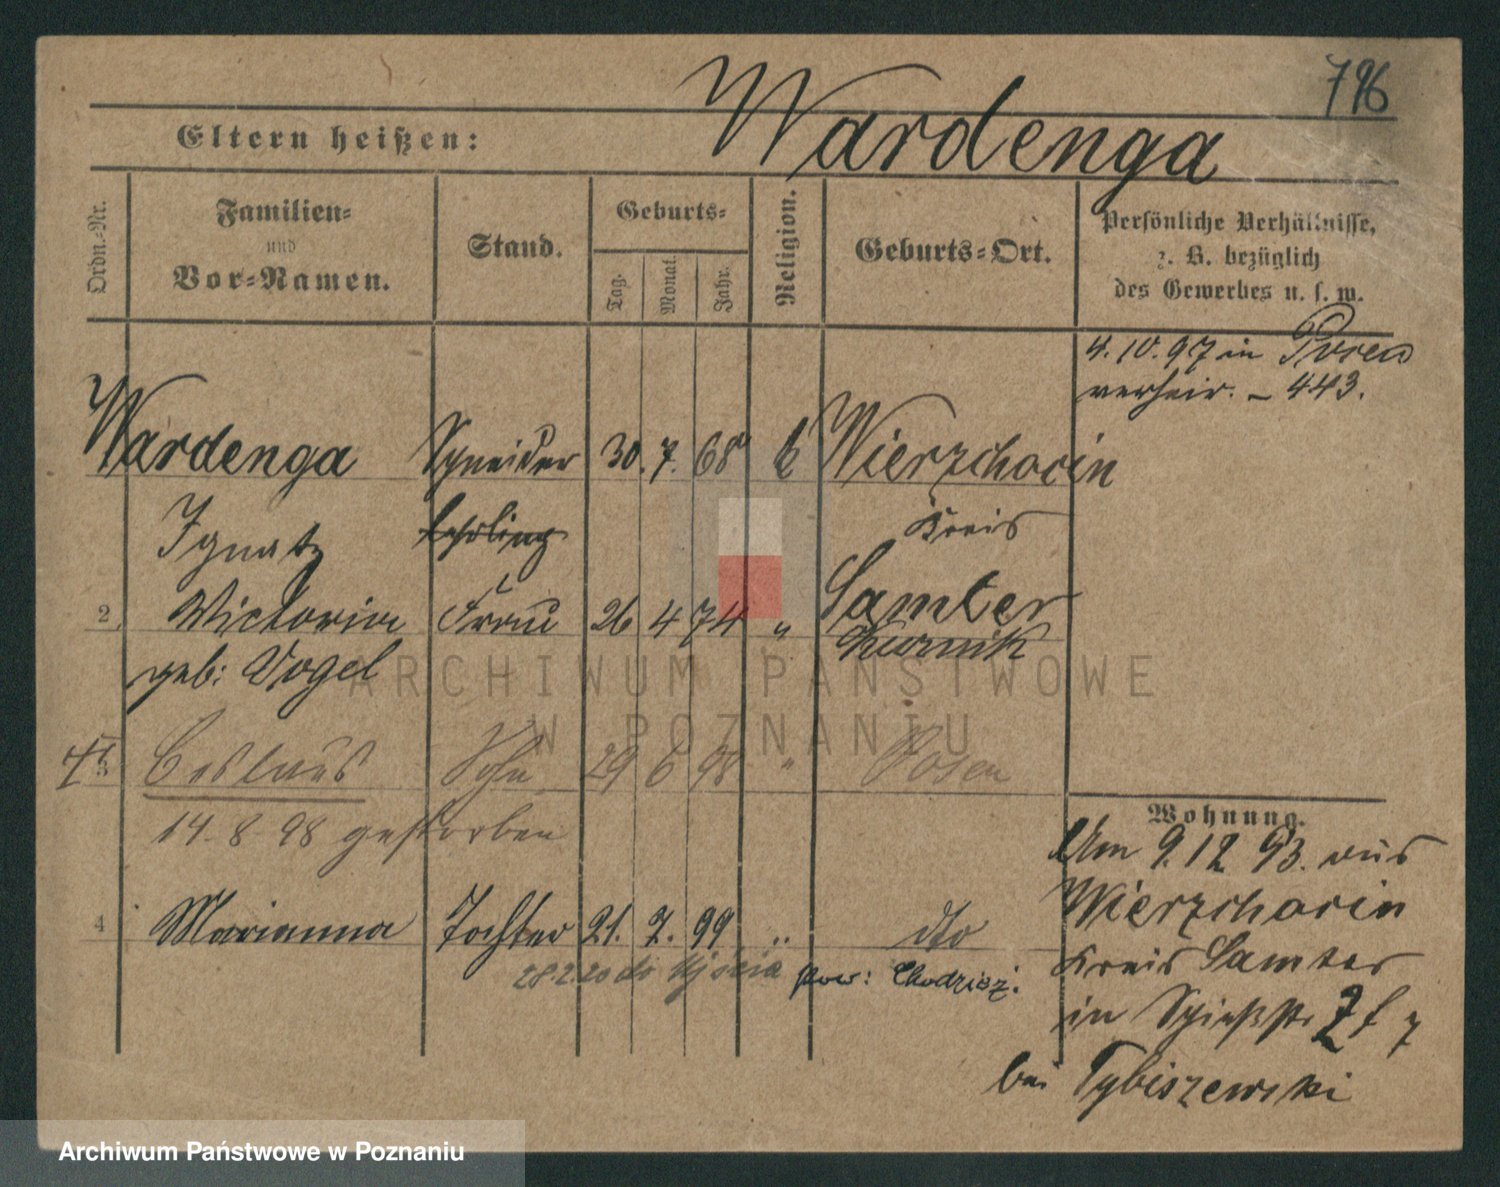 796
Wardenga
Eltern heißen:
Ordn.-Nr.
Familien-
und
Vor-Namen.
Stand.
Geburts-
Tag.
Monat.
Jahr.
Religion.
Geburts-Ort.
Persönliche Verhältnisse,
z. B. bezüglich
des Gewerbes u. s. w.
4.10.97 in Posen
verheir. - 443.
Wardenga Schneider 30. 7. 68 k Wierzchocin
Ignatz Lehrling Kreis
Samter
2 Wictoria Frau 26 4 74 " Kurnik
geb: Vogel
3 Ceslaus Sohn 29 6 98 " Posen
14.8.98 gestorben
4 Marianna Tochter 21. 7. 99 " dto
28.2.20 do pow: Chodzież.
Wohnung.
Am 9.12 93. aus
Wierzchocin
Kreis Samter
in
bei Tybiszewski
ARCHIWUM PAŃSTWOWE
W POZNANIU
Archiwum Państwowe w Poznaniu